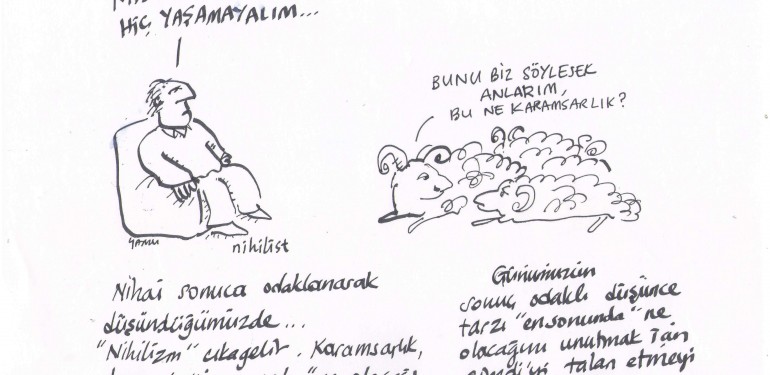 HİÇ YAŞAMAYALIM...
BUNU BİZ SÖYLESEK
ANLARIM,
BU NE KARAMSARLIK?
nihilist
Nihai sonuca odaklanarak
düşündüğümüzde...
"Nihilizm" çıkagelir. Karamsarlık,
Günümüzün
sonuç odaklı düşünce
tarzı "en sonunda" ne
olacağını unutmak için
talan etmeyi